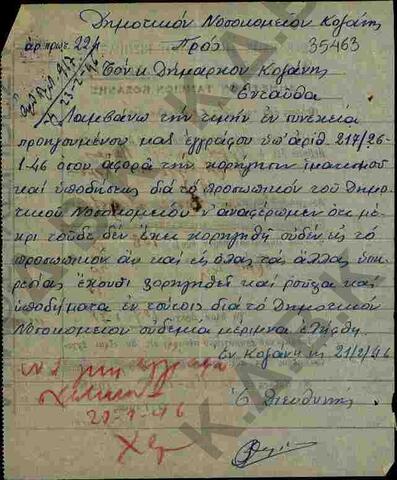 Δημοτικόν Νοσοκομείον Κοζάνης
αρ. πρωτ. 221
Πρός 35463
Τόν κ Δήμαρχον Κοζάνης
Ενταύθα
Λαμβάνω την τιμήν εν συνεχεία
προηγουμένου μας εγγράφου υπ' αριθ. 217/26-
1-46 όσον αφορά την χορήγησιν ιματισμού
και υποδήσεως διά το προσωπικόν του Δημο
τικού Νοσοκομείου ν' αναφέρωμεν ότι μέ-
χρι τούδε δεν έχει χορηγηθή ουδέν εις το
προσωπικόν αν και εις όλας τας άλλας υπη
ρεσίας έχουσι χορηγηθεί και ρούχα και
υποδήματα εν τούτοις διά το Δημοτικόν
Νοσοκομείον ουδεμία μέριμνα ελήφθη.
Εν Κοζάνη τη 21/2/46
Ο Διευθυντής
Κ.Δ.Β.Κ.